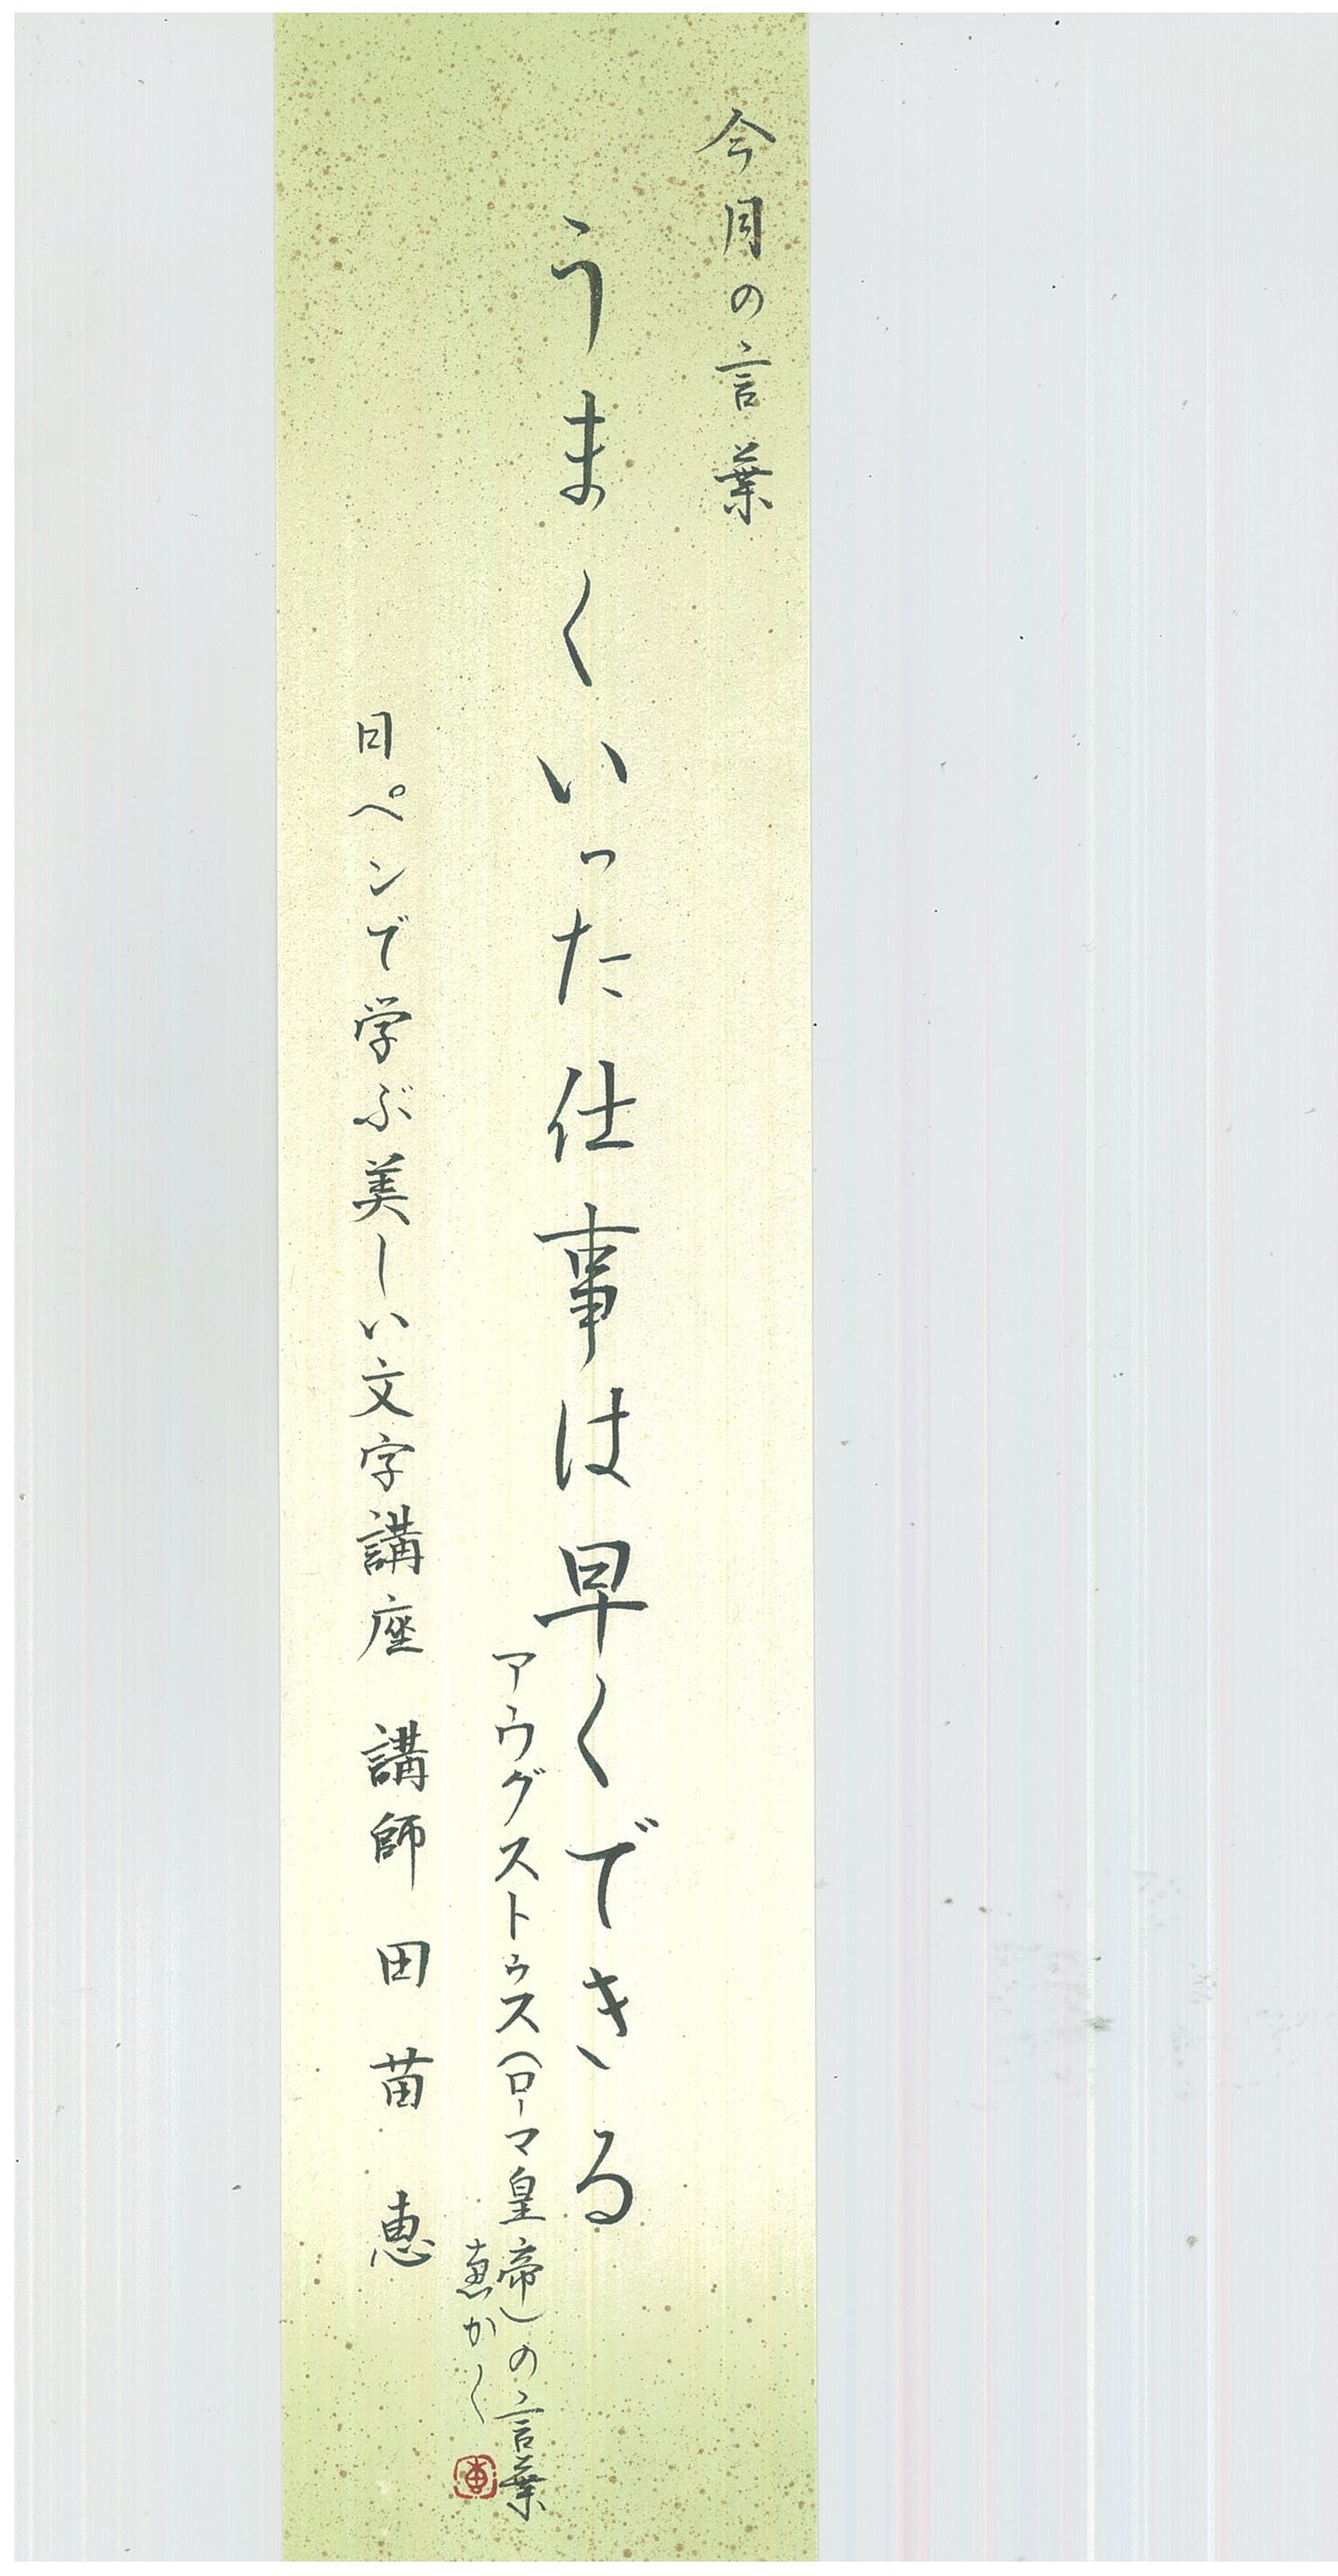 今月の言葉
うまくいった仕事は早くできる
アウグストゥス(ローマ皇帝)の言葉
恵かく
日ペンで学ぶ美しい文字講座 講師 田苗 恵
恵